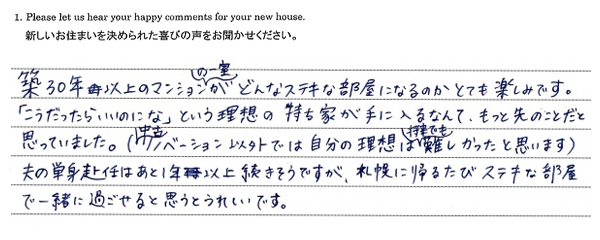 1. Please let us hear your happy comments for your new house.
新しいお住まいを決められた喜びの声をお聞かせください。
築30年以上のマンションの一室がどんなステキな部屋になるのかとても楽しみです。
「こうだったらいいのにな」という理想の持ち家が手に入るなんて、もっと先のことだと
思っていました。(中古リノベーション以外では自分の理想は将来でも難しかったと思います)
夫の単身赴任はあと1年以上続きそうですが、札幌に帰るたびステキな部屋
で一緒に過ごせると思うとうれしいです。